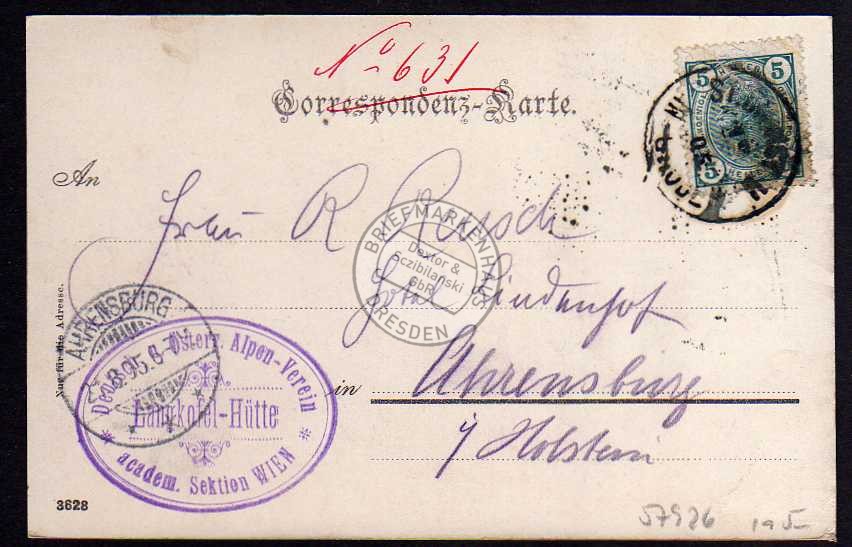 No 631
Correspondenz-Karte.
An
Frau R Reusch
Hotel Lindenhof
in Ahrensburg
i/ Holstein
Nur für die Adresse.
AHRENSBURG
8.05.6-7N
Deu. u. Österr. Alpen-Verein
Langkofel-Hütte
academ. Sektion WIEN
BRIEFMARKENHAUS
Dextor &
Sczibilanski
GbR
DRESDEN
5 5
5
ST.
05
3628
57926 195-